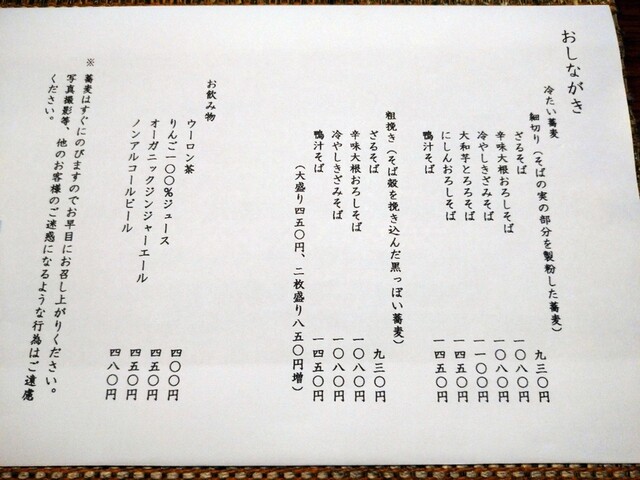 おしながき
冷たい蕎麦
細切り（そばの実の部分を製粉した蕎麦）
ざるそば 九三〇円
辛味大根おろしそば 一〇八〇円
冷やしきざみそば 一〇八〇円
大和芋とろろそば 一一〇〇円
にしんおろしそば 一四五〇円
鴨汁そば 一四五〇円
粗挽き（そば殻を挽き込んだ黒っぽい蕎麦）
ざるそば 九三〇円
辛味大根おろしそば 一〇八〇円
冷やしきざみそば 一〇八〇円
鴨汁そば 一四五〇円
（大盛り四五〇円、二枚盛り八五〇円増）
お飲み物
ウーロン茶 四〇〇円
りんご一〇〇％ジュース 四五〇円
オーガニックジンジャーエール 四五〇円
ノンアルコールビール 四八〇円
※ 蕎麦はすぐにのびますのでお早目にお召し上がりください。
写真撮影等、他のお客様のご迷惑になるような行為はご遠慮
ください。